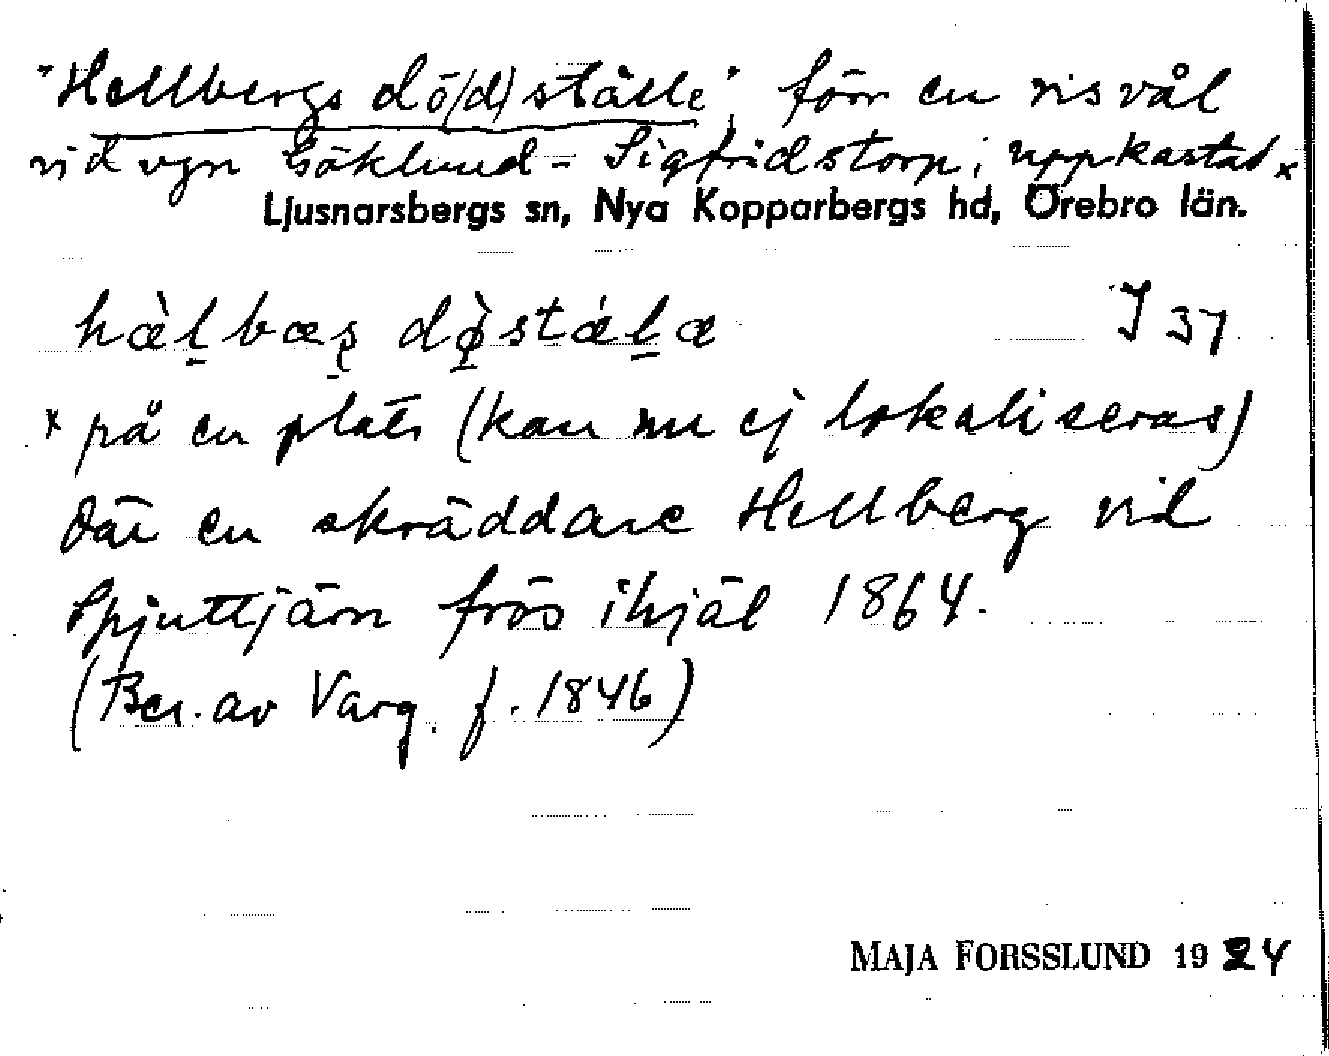 "Hellbergs dö(d)ställe", förr en risvål
vid vgn Göklund - Sigfridstorp, uppkastad x
Ljusnarsbergs sn, Nya Kopparbergs hd, Örebro län.
hæ̀l̠bæʂ dø̀stǽl̠æ I 37
x på en plats (kan nu ej lokaliseras)
där en skräddare Hellberg vid
Spjuttjärn frös ihjäl 1864.
(Ber. av Varg. f. 1846)
MAJA FORSSLUND 1924